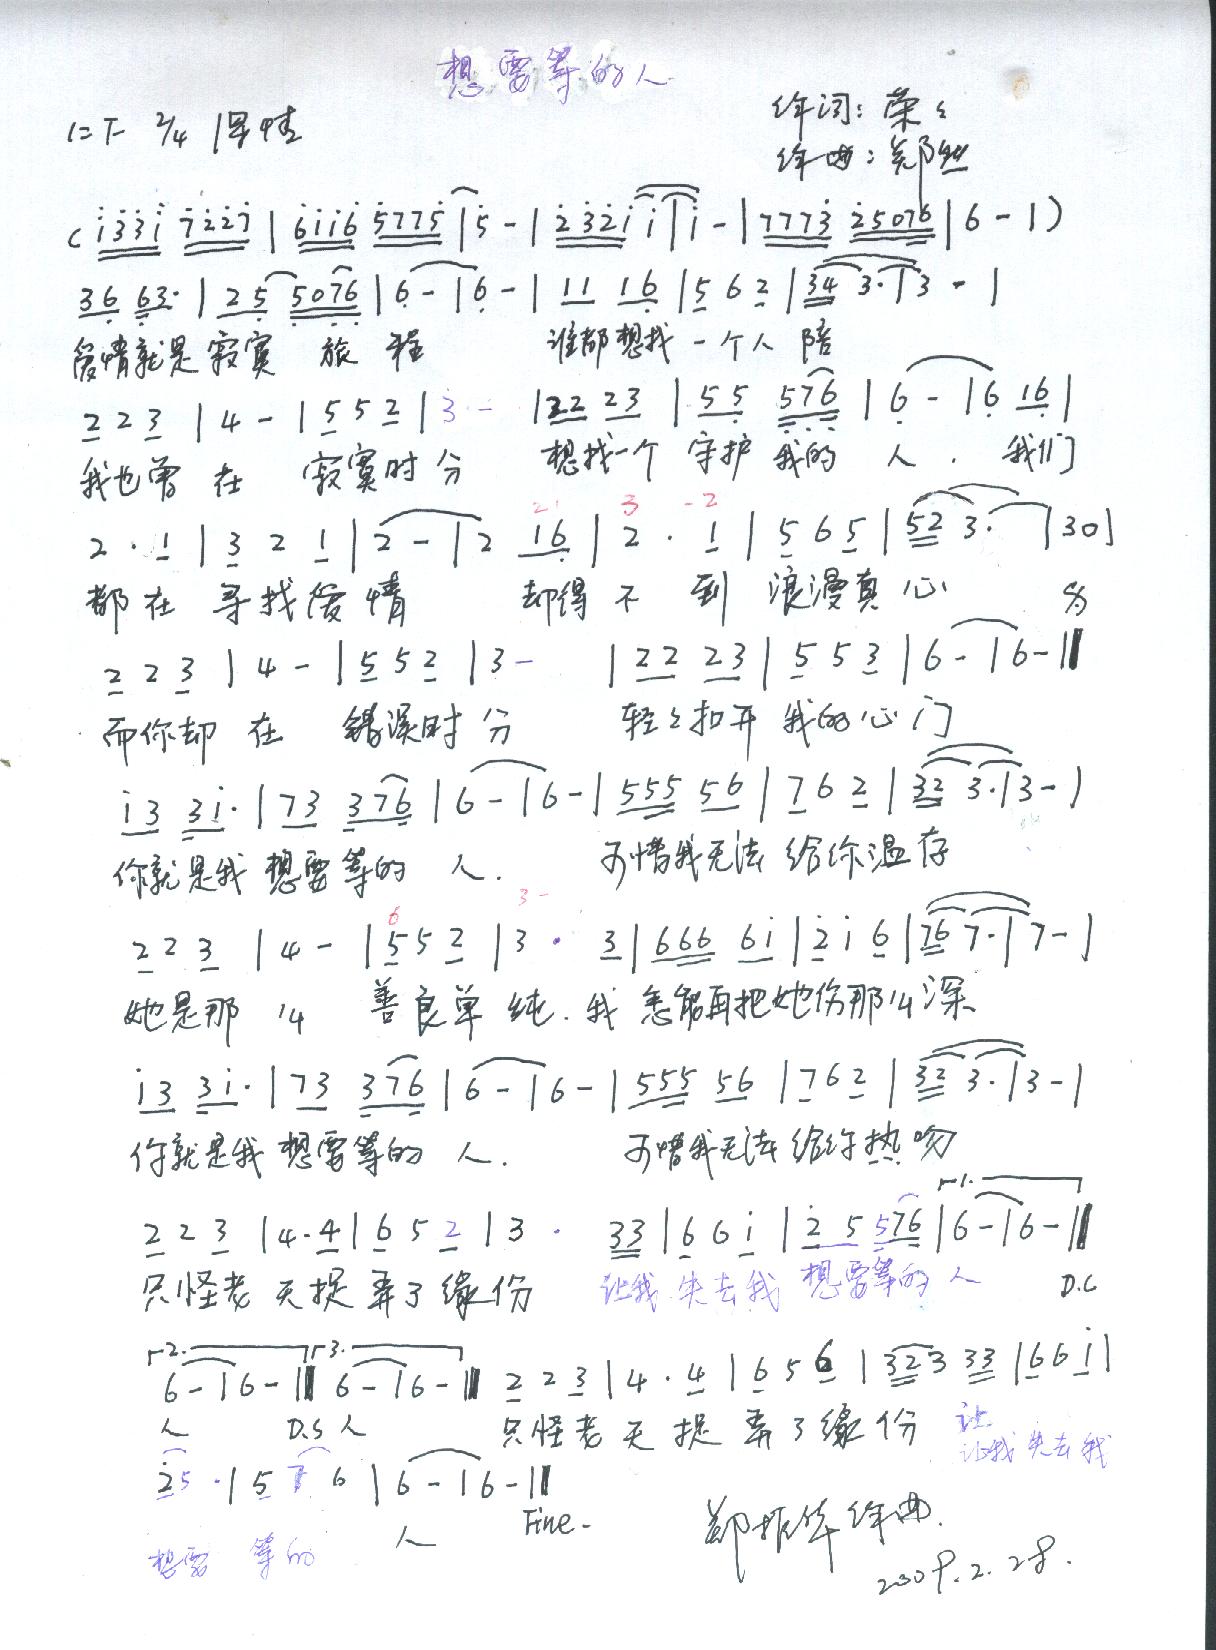 想要等的人
1=F 2/4 深情
作词：荣荣
作曲：郑
( i33i 7227 | 6116 5775 | 5 - | 2321 i | i - | 7773 25076 | 6 - | )
36 63· | 25 5076 | 6 - | 6 - | 11 16 | 5 6 2 | 34 3· | 3 - |
爱情就是寂寞 旅程 谁都想找一个人陪
2 2 3 | 4 - | 5 5 2 | 3 - | 22 23 | 55 576 | 6 - | 6 16 |
我也曾在 寂寞时分 想找一个 守护 我的 人. 我们
2 · 1 | 3 2 1 | 2 - | 2 16 | 2 · 1 | 5 6 5 | 52 3· | 30 |
都在 寻找爱情 却得不到 浪漫真心
2 2 3 | 4 - | 5 5 2 | 3 - | 22 23 | 5 5 3 | 6 - | 6 - ‖
而你却在 错误时分 轻轻扣开 我的心门
i3 3i· | 73 376 | 6 - | 6 - | 555 56 | 7 6 2 | 32 3· | 3 - |
你就是我想要等的 人. 可惜我无法 给你温存
2 2 3 | 4 - | 5 5 2 | 3 · 3 | 666 6i | 2 i 6 | 76 7· | 7 - |
她是那么 善良单纯. 我怎能再把她伤那么深
i3 3i· | 73 376 | 6 - | 6 - | 555 56 | 7 6 2 | 32 3· | 3 - |
你就是我 想要等的 人. 可惜我无法 给你热吻
1.
2 2 3 | 4 · 4 | 6 5 2 | 3 · 33 | 6 6 i | 2 5 576 | 6 - | 6 - ‖
只怪老天捉弄了缘份 让我失去我 想要等的人 D.C
2. 3.
6 - | 6 - ‖ 6 - | 6 - ‖ 2 2 3 | 4 · 4 | 6 5 6 | 323 33 | 6 6 i |
人 D.S 人 只怪老天捉弄了缘份 让
让我失去我
2 5 · | 5 7 6 | 6 - | 6 - ‖
想要 等的 人 Fine.
郑振华作曲.
2009.2.28.